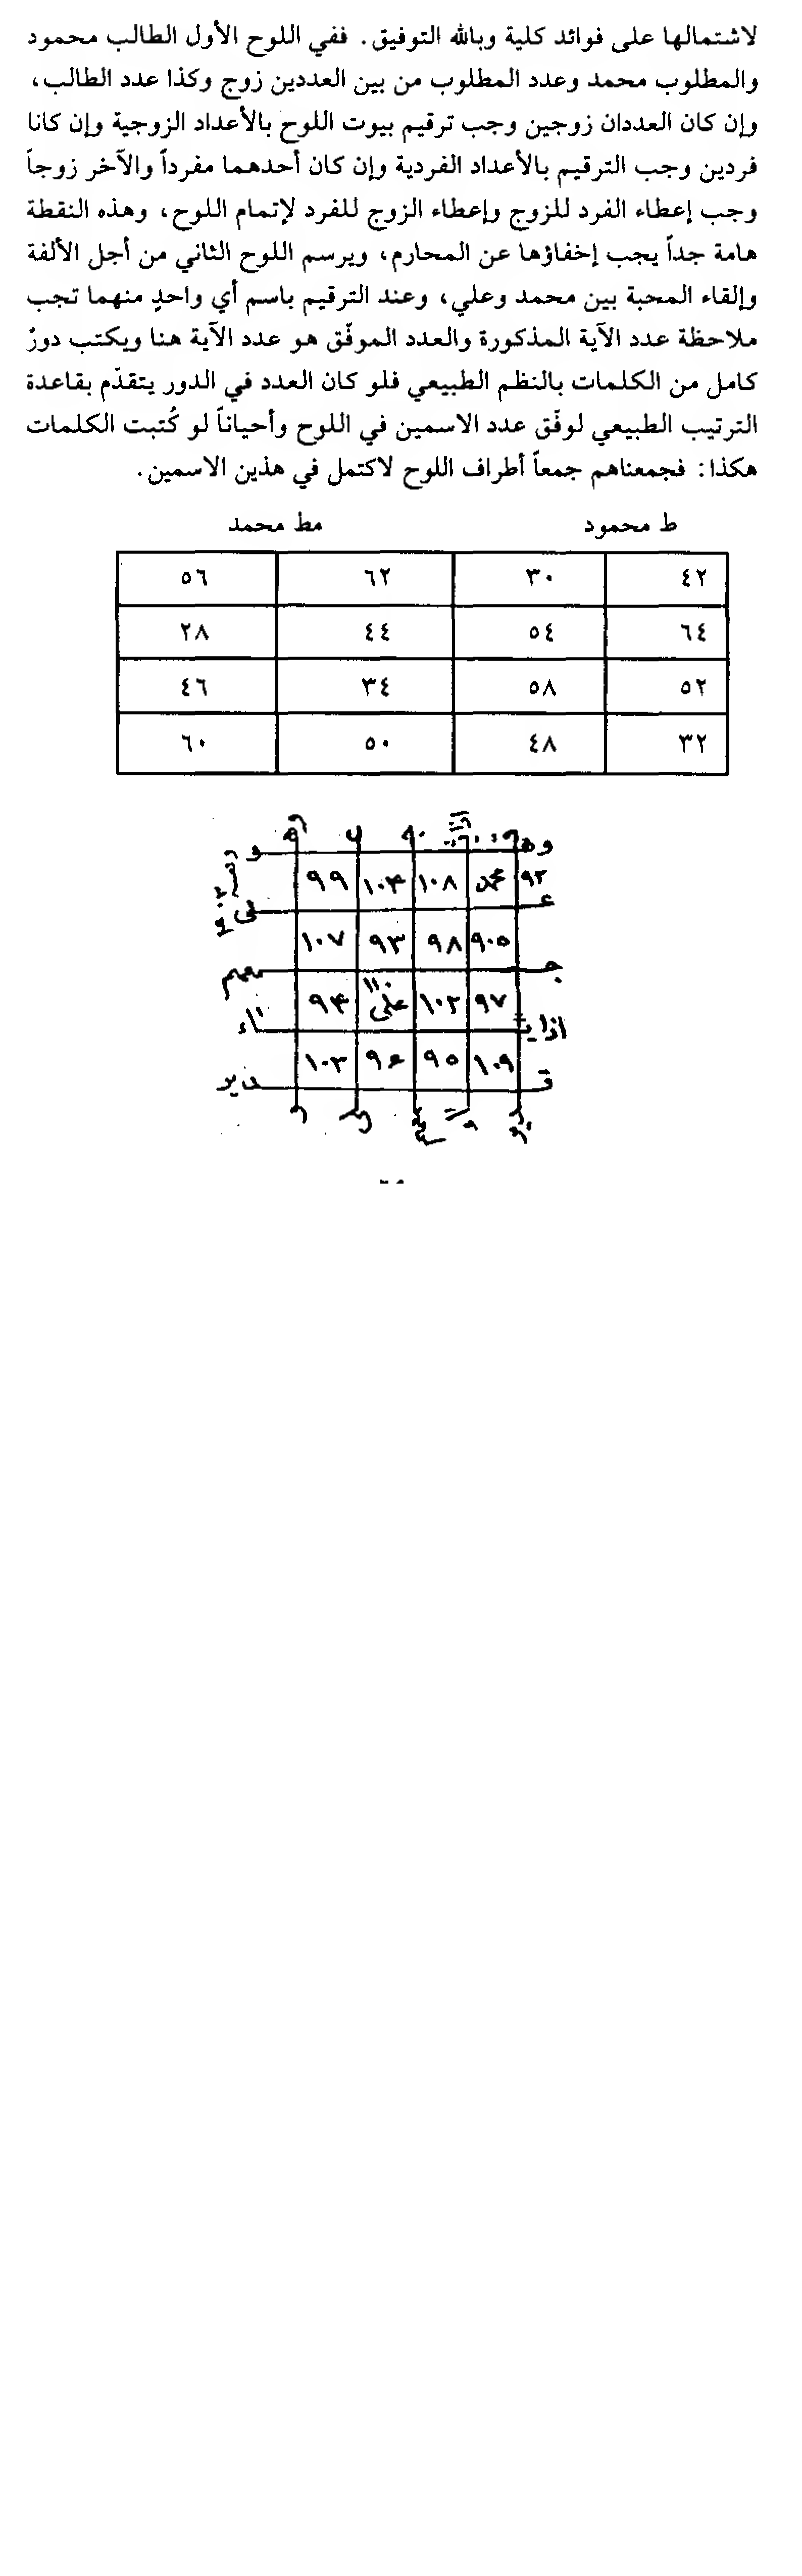 لاشتمالها على فوائد كلية وبالله التوفيق. ففي اللوح الأول الطالب محمود
والمطلوب محمد وعدد المطلوب من بين العددين زوج وكذا عدد الطالب،
وإن كان العددان زوجين وجب ترقيم بيوت اللوح بالأعداد الزوجية وإن كانا
فردين وجب الترقيم بالأعداد الفردية وإن كان أحدهما مفرداً والآخر زوجاً
وجب إعطاء الفرد للزوج وإعطاء الزوج للفرد لإتمام اللوح، وهذه النقطة
هامة جداً يجب إخفاؤها عن المحارم، ويرسم اللوح الثاني من أجل الألفة
وإلقاء المحبة بين محمد وعلي، وعند الترقيم باسم أي واحدٍ منهما تجب
ملاحظة عدد الآية المذكورة والعدد الموفّق هو عدد الآية هنا ويكتب دورٌ
كامل من الكلمات بالنظم الطبيعي فلو كان العدد في الدور يتقدّم بقاعدة
الترتيب الطبيعي لوفّق عدد الاسمين في اللوح وأحياناً لو كُتبت الكلمات
هكذا: فجمعناهم جمعاً أطراف اللوح لاكتمل في هذين الاسمين.
ط محمود مط محمد
٤٢ ٣٠ ٦٢ ٥٦
٦٤ ٥٤ ٤٤ ٢٨
٥٢ ٥٨ ٣٤ ٤٦
٣٢ ٤٨ ٥٠ ٦٠
٩٢ محمد ١٠٨ ١٠۴ ٩٩
٩٠٥ ٩٨ ٩٣ ١٠٧
٩٧ ١٠٢ ١١٠ علي ٩۴
١٠٩ ٩٥ ٩۶ ١٠٣